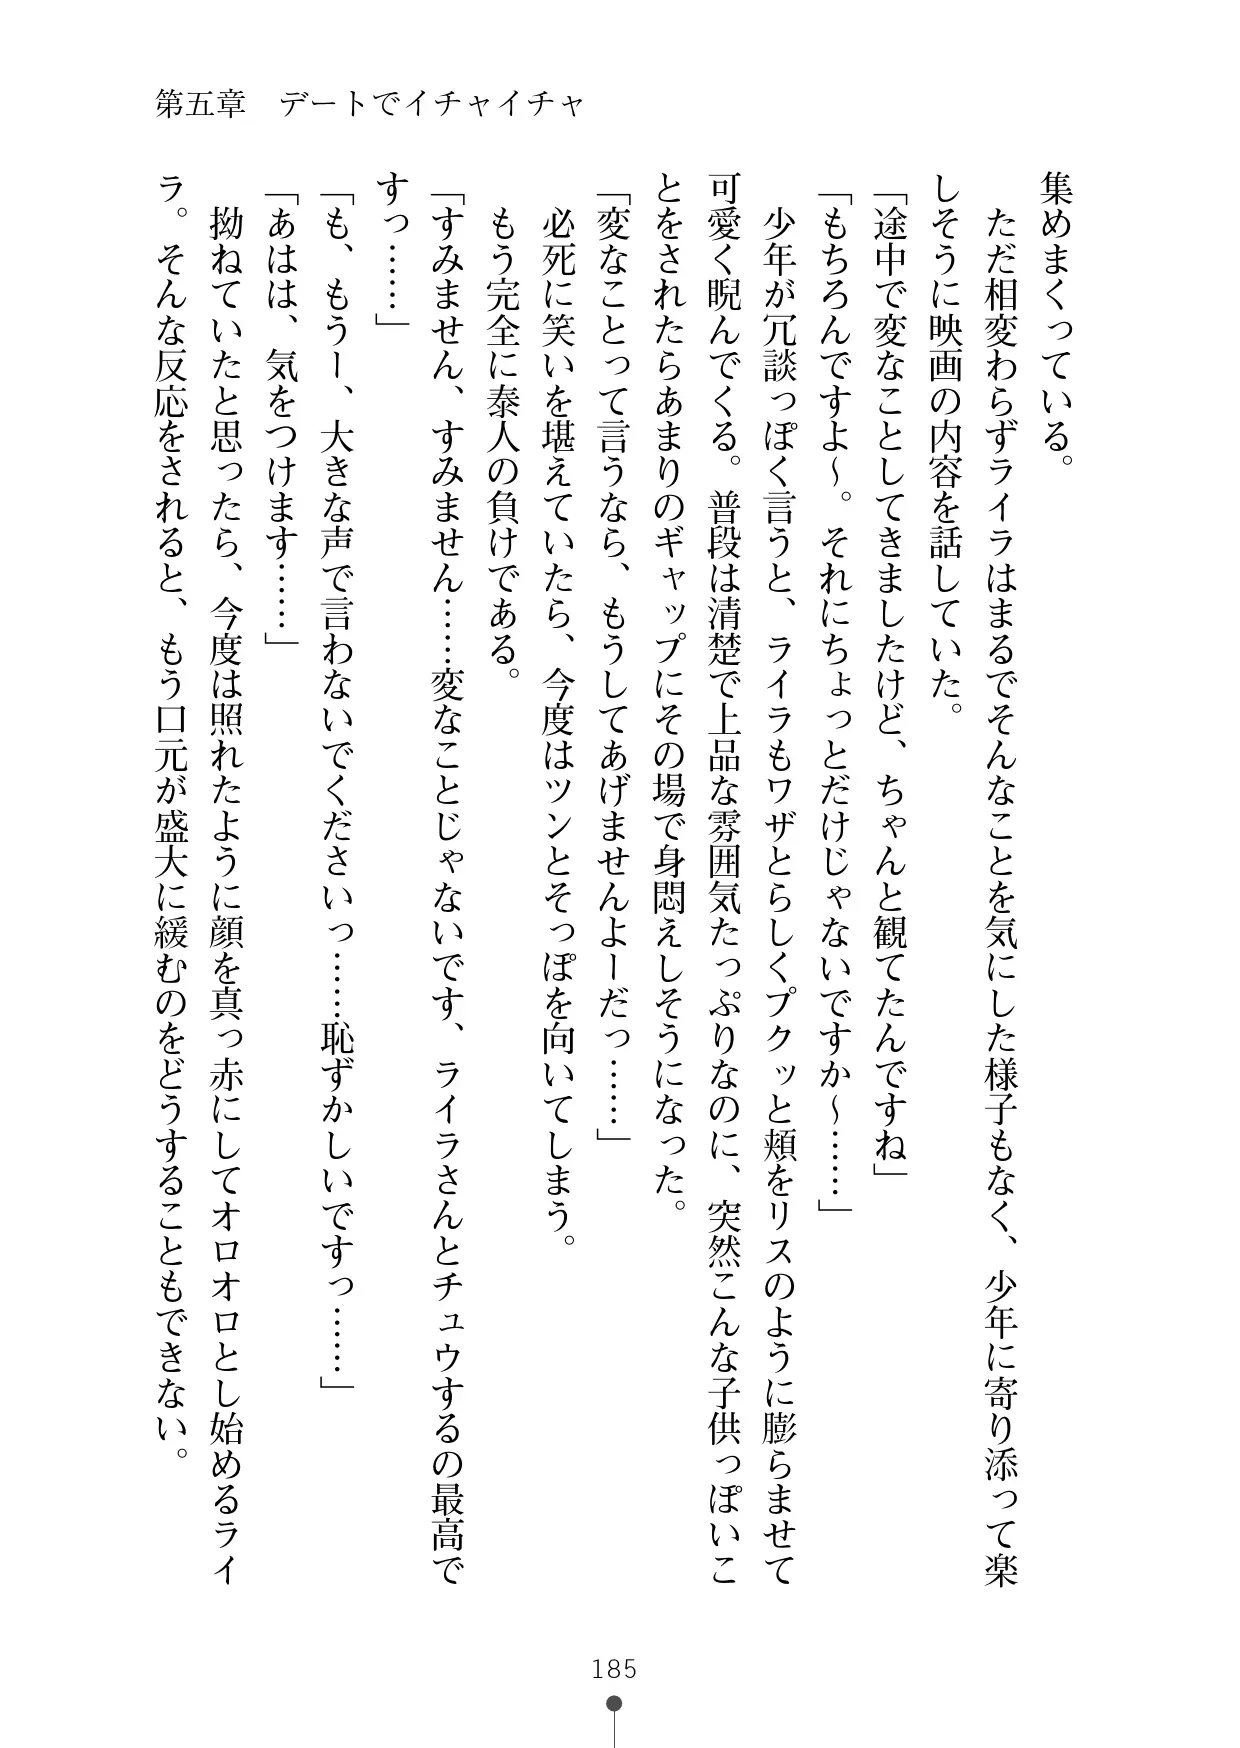 第五章　デートでイチャイチャ
集めまくっている。
　ただ相変わらずライラはまるでそんなことを気にした様子もなく、少年に寄り添って楽
しそうに映画の内容を話していた。
「途中で変なことしてきましたけど、ちゃんと観てたんですね」
「もちろんですよ～。それにちょっとだけじゃないですか～……」
　少年が冗談っぽく言うと、ライラもワザとらしくプクッと頬をリスのように膨らませて
可愛く睨んでくる。普段は清楚で上品な雰囲気たっぷりなのに、突然こんな子供っぽいこ
とをされたらあまりのギャップにその場で身悶えしそうになった。
「変なことって言うなら、もうしてあげませんよーだっ……」
　必死に笑いを堪えていたら、今度はツンとそっぽを向いてしまう。
　もう完全に泰人の負けである。
「すみません、すみません……変なことじゃないです、ライラさんとチュウするの最高で
すっ……」
「も、もうー、大きな声で言わないでくださいっ……恥ずかしいですっ……」
「あはは、気をつけます……」
　拗ねていたと思ったら、今度は照れたように顔を真っ赤にしてオロオロとし始めるライ
ラ。そんな反応をされると、もう口元が盛大に緩むのをどうすることもできない。
185